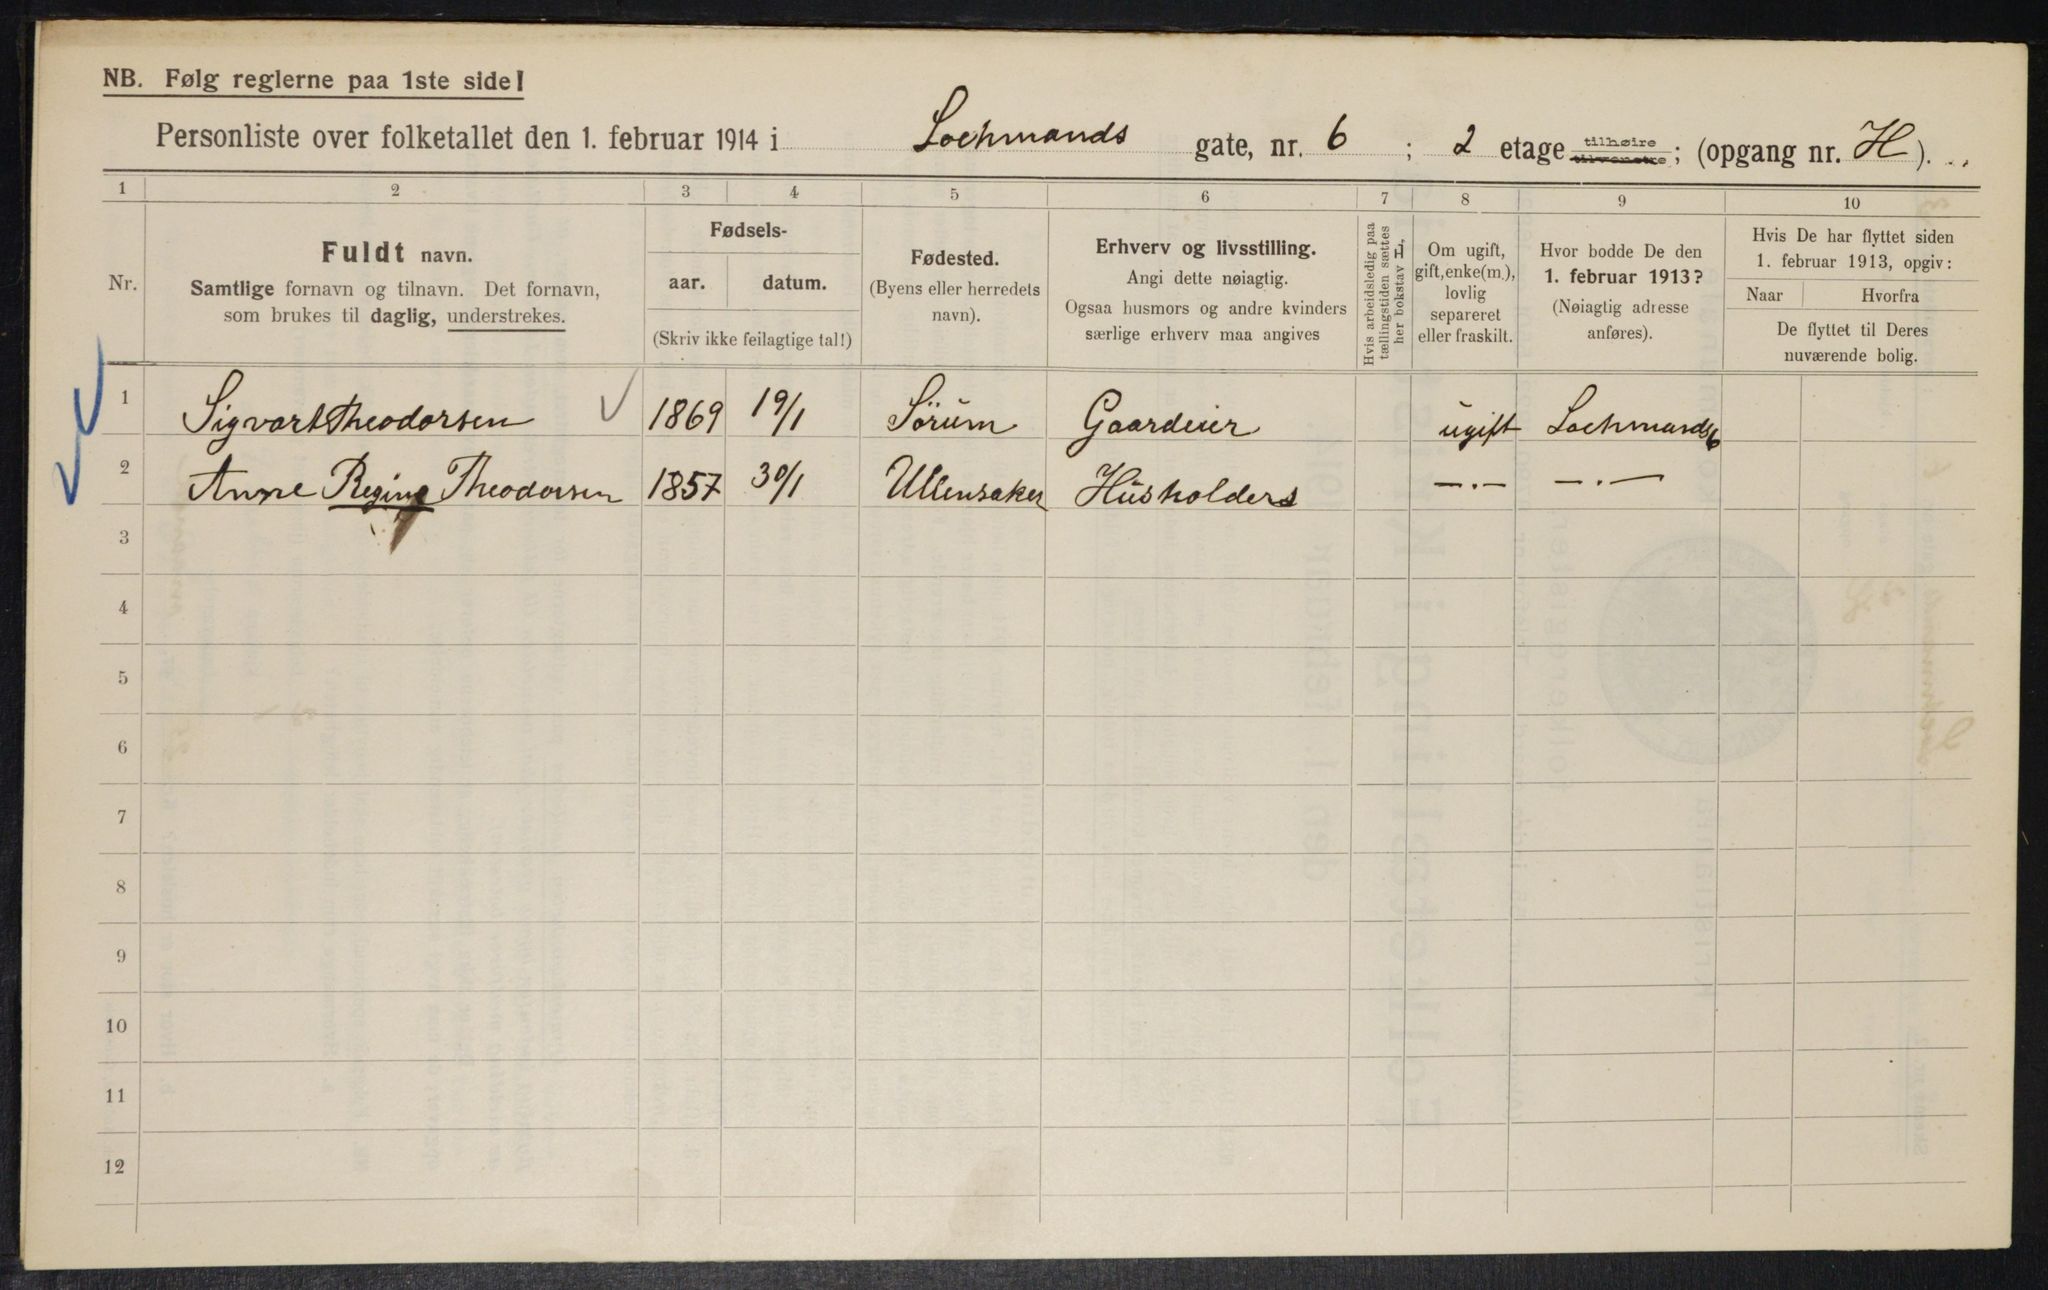 NB. Følg reglerne paa 1ste side!
Personliste over folketallet den 1. februar 1914 i Lochmands gate, nr. 6 ; 2 etage tilhøire tilvenstre; (opgang nr. H ).
1 2 3 4 5 6 7 8 9 10
Nr.
Fuldt navn.
Samtlige fornavn og tilnavn. Det fornavn,
som brukes til daglig, understrekes.
Fødsels-
aar. datum.
(Skriv ikke feilagtige tal!)
Fødested.
(Byens eller herredets
navn).
Erhverv og livsstilling.
Angi dette nøiagtig.
Ogsaa husmors og andre kvinders
særlige erhverv maa angives
Hvis arbeidsledig paa
tællingstiden sættes
her bokstav L,
Om ugift,
gift, enke(m.),
lovlig
separeret
eller fraskilt.
Hvor bodde De den
1. februar 1913?
(Nøiagtig adresse
anføres).
Hvis De har flyttet siden
1. februar 1913, opgiv:
Naar Hvorfra
De flyttet til Deres
nuværende bolig.
1 Sigvart Theodorsen 1869 19/1 Sörum Gaardeier ugift Lochmandsg 6
2 Anne Regine Theodorsen 1857 30/1 Ullensaker Husholders —·— —·—
3
4
5
6
7
8
9
10
11
12